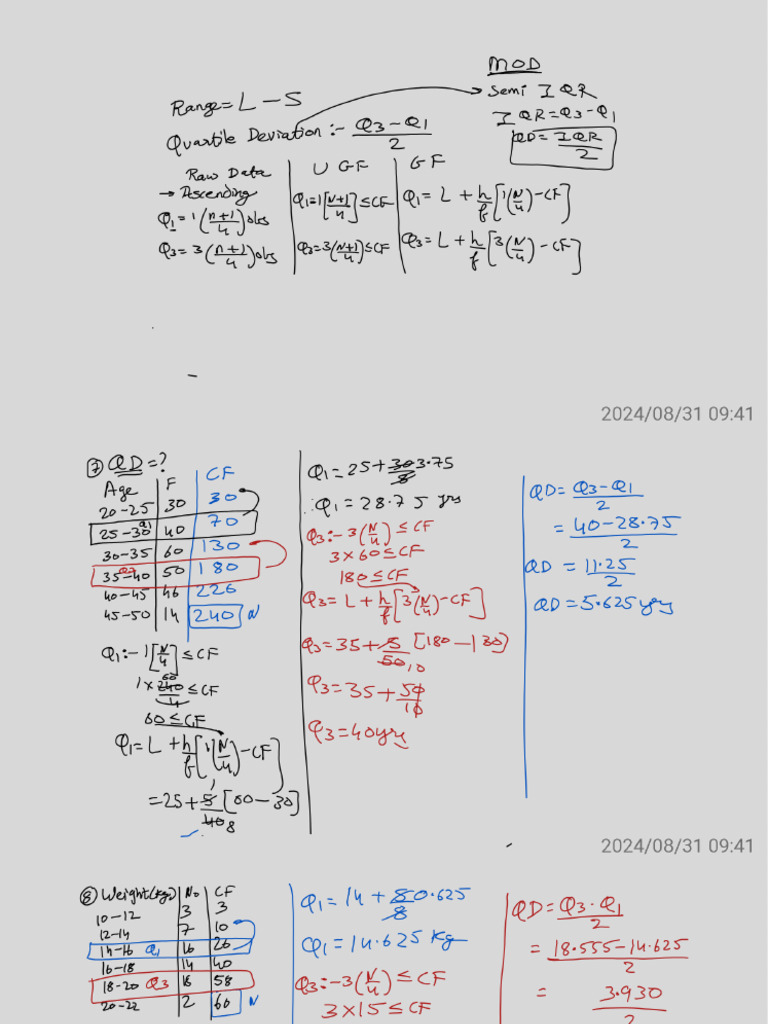 MOD
Range = L - S
Semi IQR
IQR = Q3 - Q1
Quartile Deviation :- Q3-Q1/2
QD = IQR/2
Raw Data | UGF | GF
→ Ascending
Q1 = 1(n+1/4) obs | Q1 = 1[N+1/4] ≤ CF | Q1 = L + h/f [1(N/4) - CF]
Q3 = 3(n+1/4) obs | Q3 = 3(N+1/4) ≤ CF | Q3 = L + h/f [3(N/4) - CF]
2024/08/31 09:41
⑦ QD = ?
Age F CF
20-25 30 30
25-30 Q1 40 70
30-35 60 130
35-40 Q3 50 180
40-45 46 226
45-50 14 240 N
Q1 :- 1[N/4] ≤ CF
1 × 240/4 60 ≤ CF
60 ≤ CF
Q1 = L + h/f [1(N/4) - CF]
= 25 + 5/40 1 8 [60 - 30]
Q1 = 25 + 30/8 3.75
∴ Q1 = 28.75 yrs
Q3 :- 3(N/4) ≤ CF
3 × 60 ≤ CF
180 ≤ CF
Q3 = L + h/f [3(N/4) - CF]
Q3 = 35 + 5/50 10 [180 - 130]
Q3 = 35 + 50/10
Q3 = 40 yrs
QD = Q3-Q1/2
= 40-28.75/2
QD = 11.25/2
QD = 5.625 yrs
2024/08/31 09:41
⑧ Weight(kgs) No CF
10-12 3 3
12-14 7 10
14-16 Q1 16 26
16-18 14 40
18-20 Q3 18 58
20-22 2 60 N
Q1 = 14 + 5/8 0.625
Q1 = 14.625 Kg
Q3 :- 3(N/4) ≤ CF
3 × 15 ≤ CF
QD = Q3-Q1/2
= 18.555-14.625/2
= 3.930/2